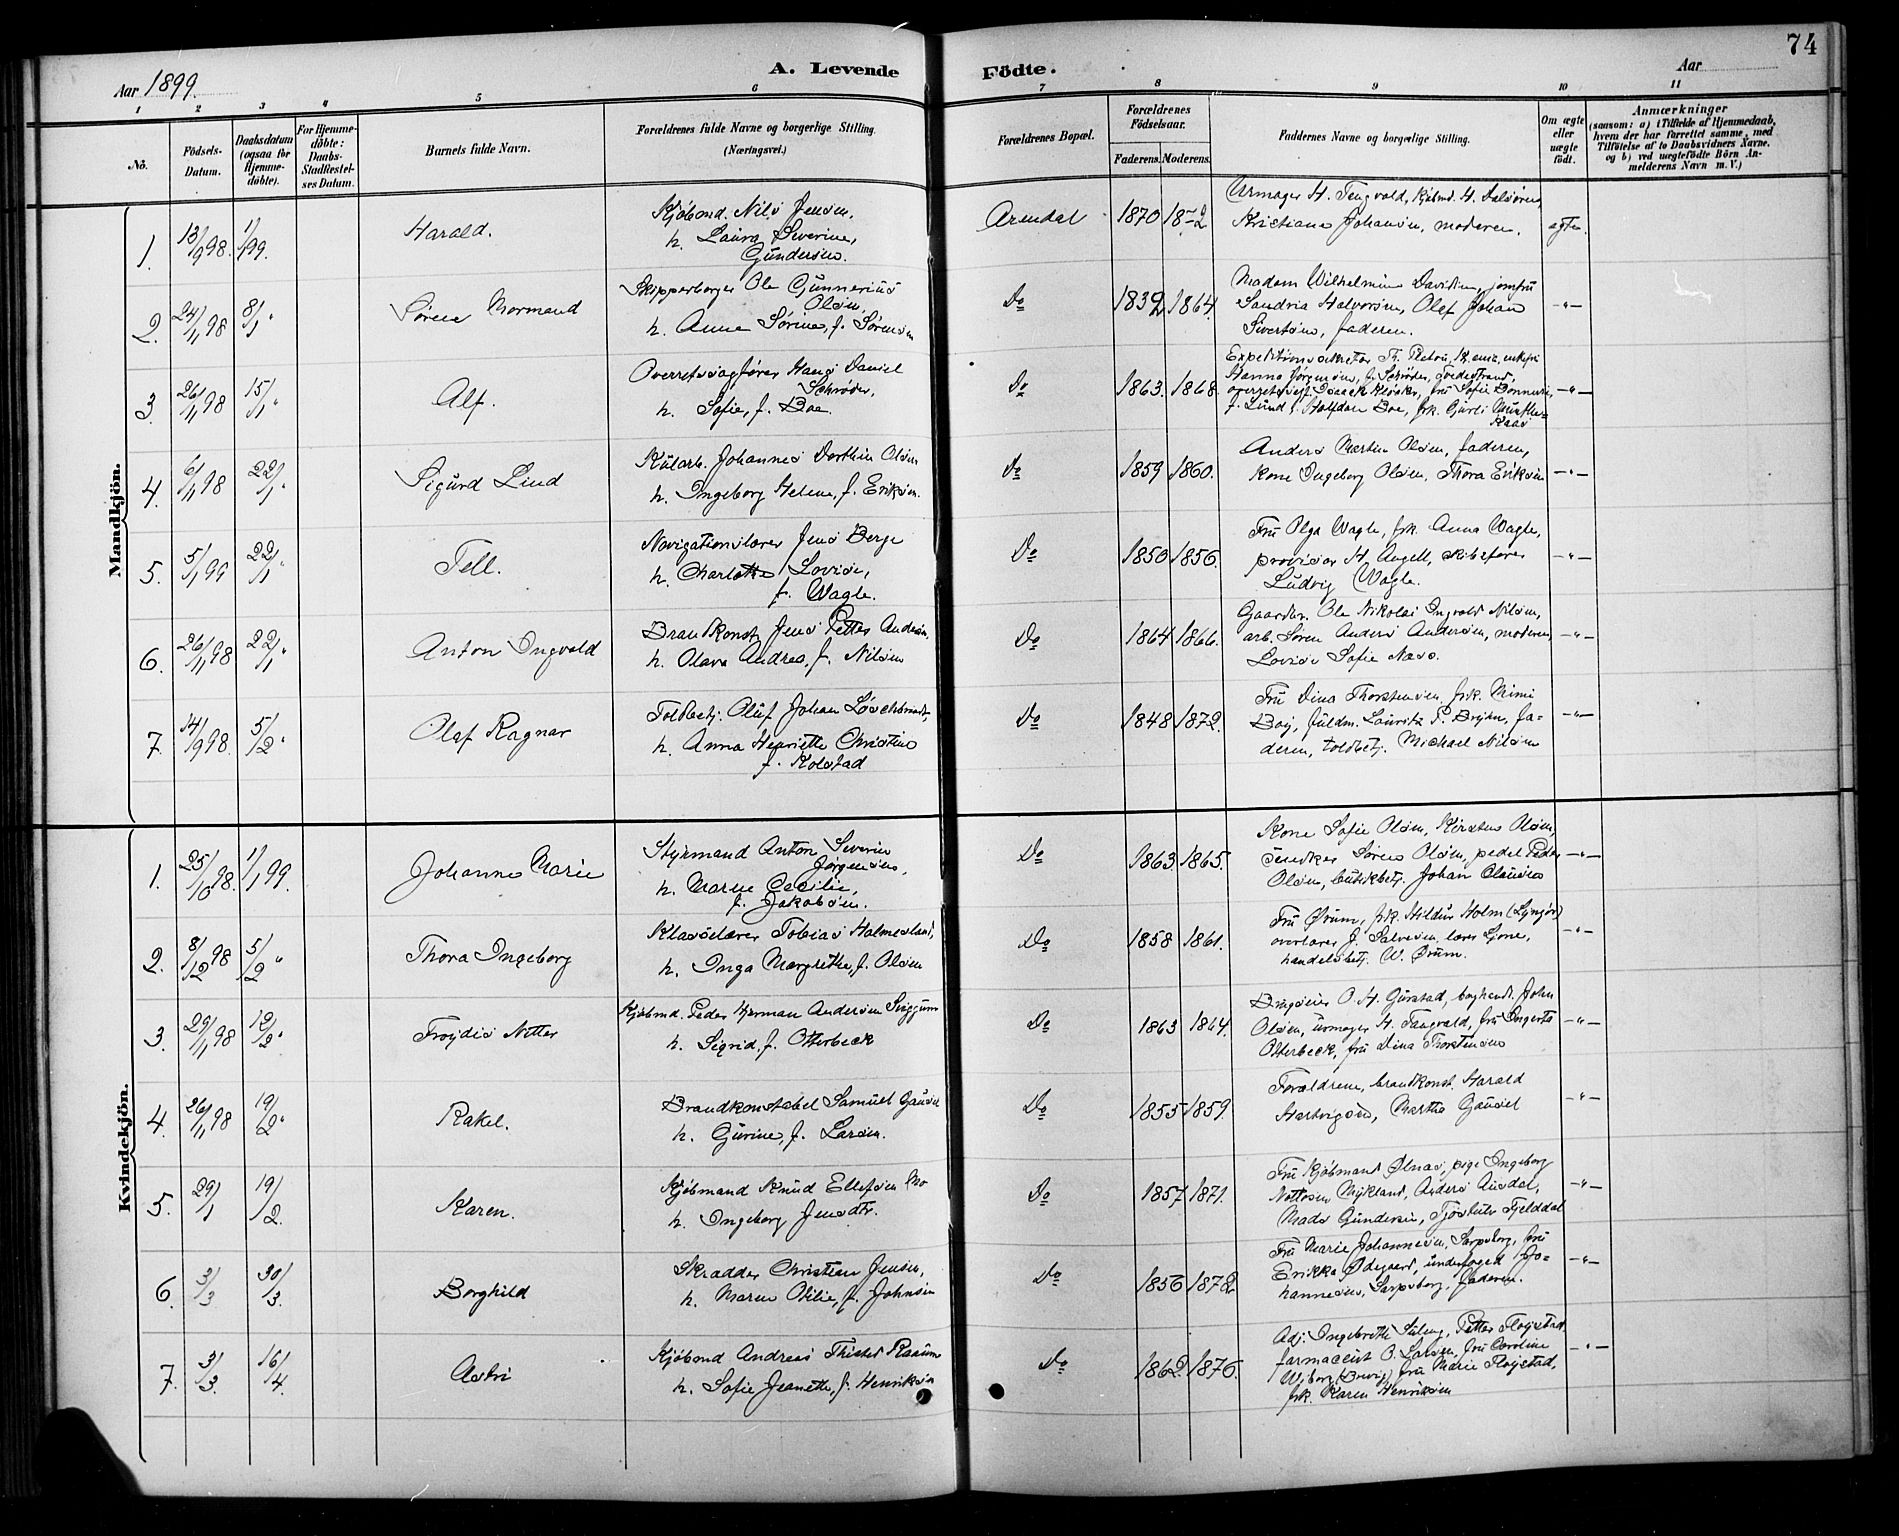 74
Aar 1899.
A. Levende Födte.
Aar
1 2 3 4 5 6 7 8 9 10 11
No.
Födsels-
Datum.
Daabsdatum
(ogsaa for
Hjemme-
döbte).
For Hjemme-
döbte:
Daabs-
Stadfæstel-
ses Datum.
Barnets fulde Navn.
Forældrenes fulde Navne og borgerlige Stilling.
(Næringsvei.)
Forældrenes Bopæl.
Forældrenes
Födselsaar.
Faderens. Moderens.
Faddernes Navne og borgerlige Stilling.
Om ægte
eller
uægte
födt.
Anmærkninger
(saasom: a) i Tilfælde af Hjemmedaab,
hvem der har forrettet samme, med
Tilföielse af to Daabsvidners Navne,
og b) ved uægtefödte Börn An-
melderens Navn m. V.)
Mandkjön.
1. 13/9 98. 1/1 99. Harald.
Kjøbmd. Nils Jensen,
h. Laura Severine,
Gundersen.
Arendal 1870 1872
Urmager H. Tengvald, Kjøbmd. H.
Kristiane Johansen, moderen.
ægte.
2. 24/11 98 8/1 " Søren Normand
Skipperborger Ole Gunnerius
Olsen,
h. Anne Sørine, f. Sørensen
Do 1839 1864.
Madam Wilhelmine Davidsen, jomfru
Sandria Halvorsen, Olaf Johan
Sivertsen, faderen.
-"-
3. 26/11 98 15/1 " Alf.
Overretssagfører Hans Daniel
Schrøder,
h. Sofie, f. Boe.
Do 1863. 1868.
Expeditionssekretær Th.
Hanna Jørgensen, f. Schrøder, Tvedestrand,
Isaach Kløcker, fru Sofie
f. Lund, Halfdan Boe, frk.
Kaas
-"-
4. 6/11 98 22/1 " Sigurd Lind
Kularb. Johannes Dorthin Olsen
h. Ingeborg Helene, f. Eriksen.
Do 1859 1860.
Anders Martin Olsen, faderen,
kone Ingeborg Olsen, Thora Eriksen
-"-
5. 5/1 99 22/1 " Tell.
Navigationslærer Jens Berge
h. Charlotte Lovise,
f. Wagle.
Do 1850 1856.
Fru Olga Wagle, frk. Anna Wagle,
provisor H. Angell, skibsfører
Ludvig Wagle.
-"-
6. 26/11 98 22/1 " Anton Ingvald
Brandkonst. Jens Petter Andersen,
h. Olava Andrea, f. Nilsen
Do 1864 1866.
Gaardbr. Ole Nikolai Ingvald Nilsen,
arb. Søren Anders Andersen, moderen,
Lovise Sofie Næss.
-"-
7. 14/9 98. 5/2 " Olaf Ragnar
Toldbetj. Oluf Johan Løschbrandt,
h. Anna Henriette Christine
f. Kolstad
Do 1848 1872.
Fru Dina Thorstensen, frk. Mimi
Boij, fuldm. Lauritz P. Brijhn, fa-
deren, toldbetj. Michael Nilsen
-"-
Kvindekjön.
1. 25/10 98. 1/1 99. Johanne Marie
Styrmand Anton Severin
Jørgensen,
h. Maren Cecilie,
f. Jakobsen.
Do 1863. 1865.
Kone Sofie Olsen, Kirsten Olsen,
Søren Olsen, pedel Peder
Olsen, butikbetj. Johan Olausen
-"-
2. 8/12 98 5/2 " Thora Ingeborg
Klasselærer Tobias Holmesland,
h. Inga Margrethe, f. Olsen
Do 1858 1861.
Fru Ørum, frk. Hildur Holm (Lyngør)
overlærer J. Salvesen, lærer Ljone,
handelsbetj. W. Ørum.
-"-
3. 29/11 98 12/2 " Frøydis Nitter
Kjøbmd. Peder Herman Andersen Siggum
h. Sigrid, f. Otterbeck
Do 1863 1864.
O. H. Gurstad, boghandl. John
Olsen, urmager H. Tangvald, fru Ingerta
Otterbeck, fru Dina Thorstensen
-"-
4. 26/11 98 19/2 " Rakel.
Brandkonstabel Samuel Gausel
h. Gurine, f. Larsen.
Do 1855 1859.
Forældrene, brandkonst. Harald
Hartvigsen, Marthe Gausel
-"-
5. 29/1 19/2. Karen.
Kjøbmand Knud Ellefsen Mo
h. Ingeborg Jensdtr.
Do 1857 1871.
Fru Kjøbmand Ølnas, pige Ingeborg
Mykland, Anders Ausdal,
Mads Gundersen, Fjelddal
-"-
6. 3/3 30/3. Borghild
Skrædder Christian Jensen,
h. Maren Otilie, f. Johnsen
Do 1856 1872
Fru Marie Johannesen, Sarpsborg, fru
Erikka Ødegaard, underfoged Jo-
hannesen, Sarpsborg, faderen.
-"-
7. 3/3. 16/4. Astri
Kjøbmd Andreas Thisted Raaum
h. Sofie Jeanette, f. Henriksen
Do 1862. 1876.
Adj. Ingebreth Petter Fløystad,
farmaceut O. Larsen, fru Caroline
Wiborg (Brevig), fru Marie Fløystad,
frk. Karen Henriksen
-"-